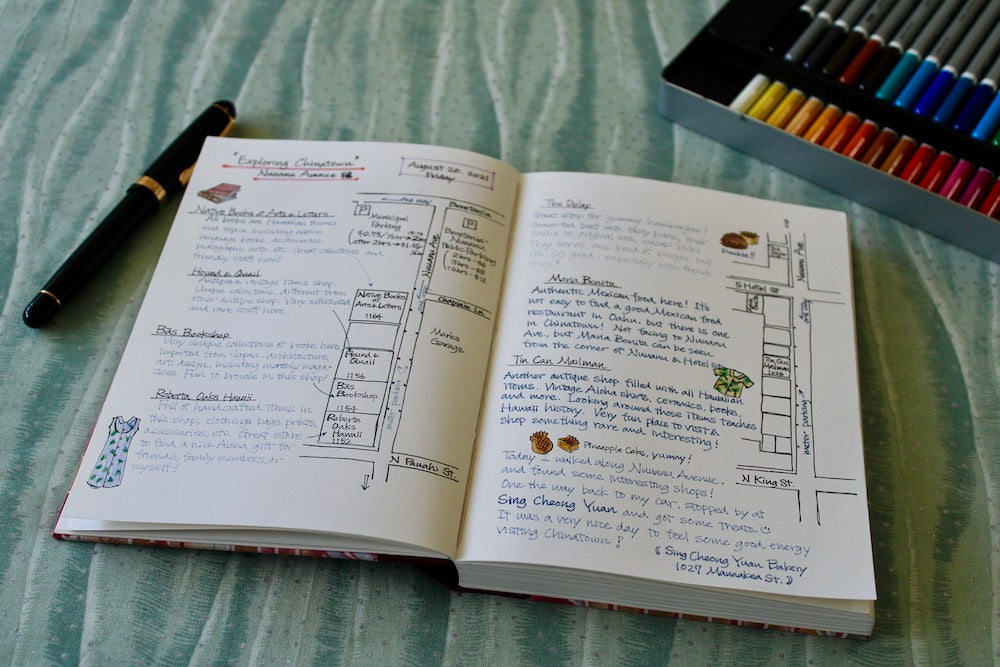 "Exploring Chinatown"
Nuuanu Avenue
August 20. 2021
Friday
Native Books at Arts & Letters
All books are Hawaiian themes
and topic, including native
language books, dictionaries,
photographs, arts, etc. Great collections, and
friendly staff here!
Hound & Quail
Antique & vintage items shop.
Unique selections, different from
other antique shop. Very selected
and rare stuff here
Bas Bookshop
Very unique collections of books here,
imported from Japan, architecture,
art, design, including monthly maga-
zines. Fun to browse in this shop!
Roberta Oaks Hawaii
Full of handcrafted items in
this shop, clothings, bags, prints,
accessories, etc. Great store
to find a nice Aloha gift for
friends, family members, or
myself!
one way
P
Municipal
Parking
$0.75/½ hour
after 2hrs - $1.50
Beretania
P
Beretania-
Nuuanu
Public Parking
2hrs - $6
3hrs - $8
10hrs - $12
Nuuanu Ave.
Chaplain Ln.
Native Books
Arts & Letters
1164
Hound &
Quail
1156
Bas
Bookshop
1154
Roberta
Oaks
Hawaii
1152
Marks
Garage
meter parking
N Pauahi St.
The Daley
Great stop for yummy hamburger!
They serve one kind of burger, but
it's SO good, especially with french
fries!
Double!!
Maria Bonita
Authentic Mexican food here! It's
not easy to find a good Mexican food
restaurant in Oahu, but there is one
in Chinatown! Not facing to Nuuanu
Ave., but Maria Bonita can be seen
from the corner of Nuuanu & Hotel St.
Tin Can Mailman
Another antique shop filled with all Hawaiian
items. Vintage Aloha shirts, ceramics, books,
and more. Looking around those items teaches
Hawaii history. Very fun place to visit &
shop something rare and interesting!
Pineapple Cake, yummy!
Today I walked along Nuuanu Avenue.
and found some interesting shops!
One the way back to my car, stopped by at
Sing Cheong Yuan and got some treats.
It was a very nice day to feel some good energy
visiting Chinatown!
《 Sing Cheong Yuan Bakery
1027 Maunakea St. 》
Nuuanu Ave.
S Hotel St.
Tin Can
Mailman
1026
meter parking
N King St.